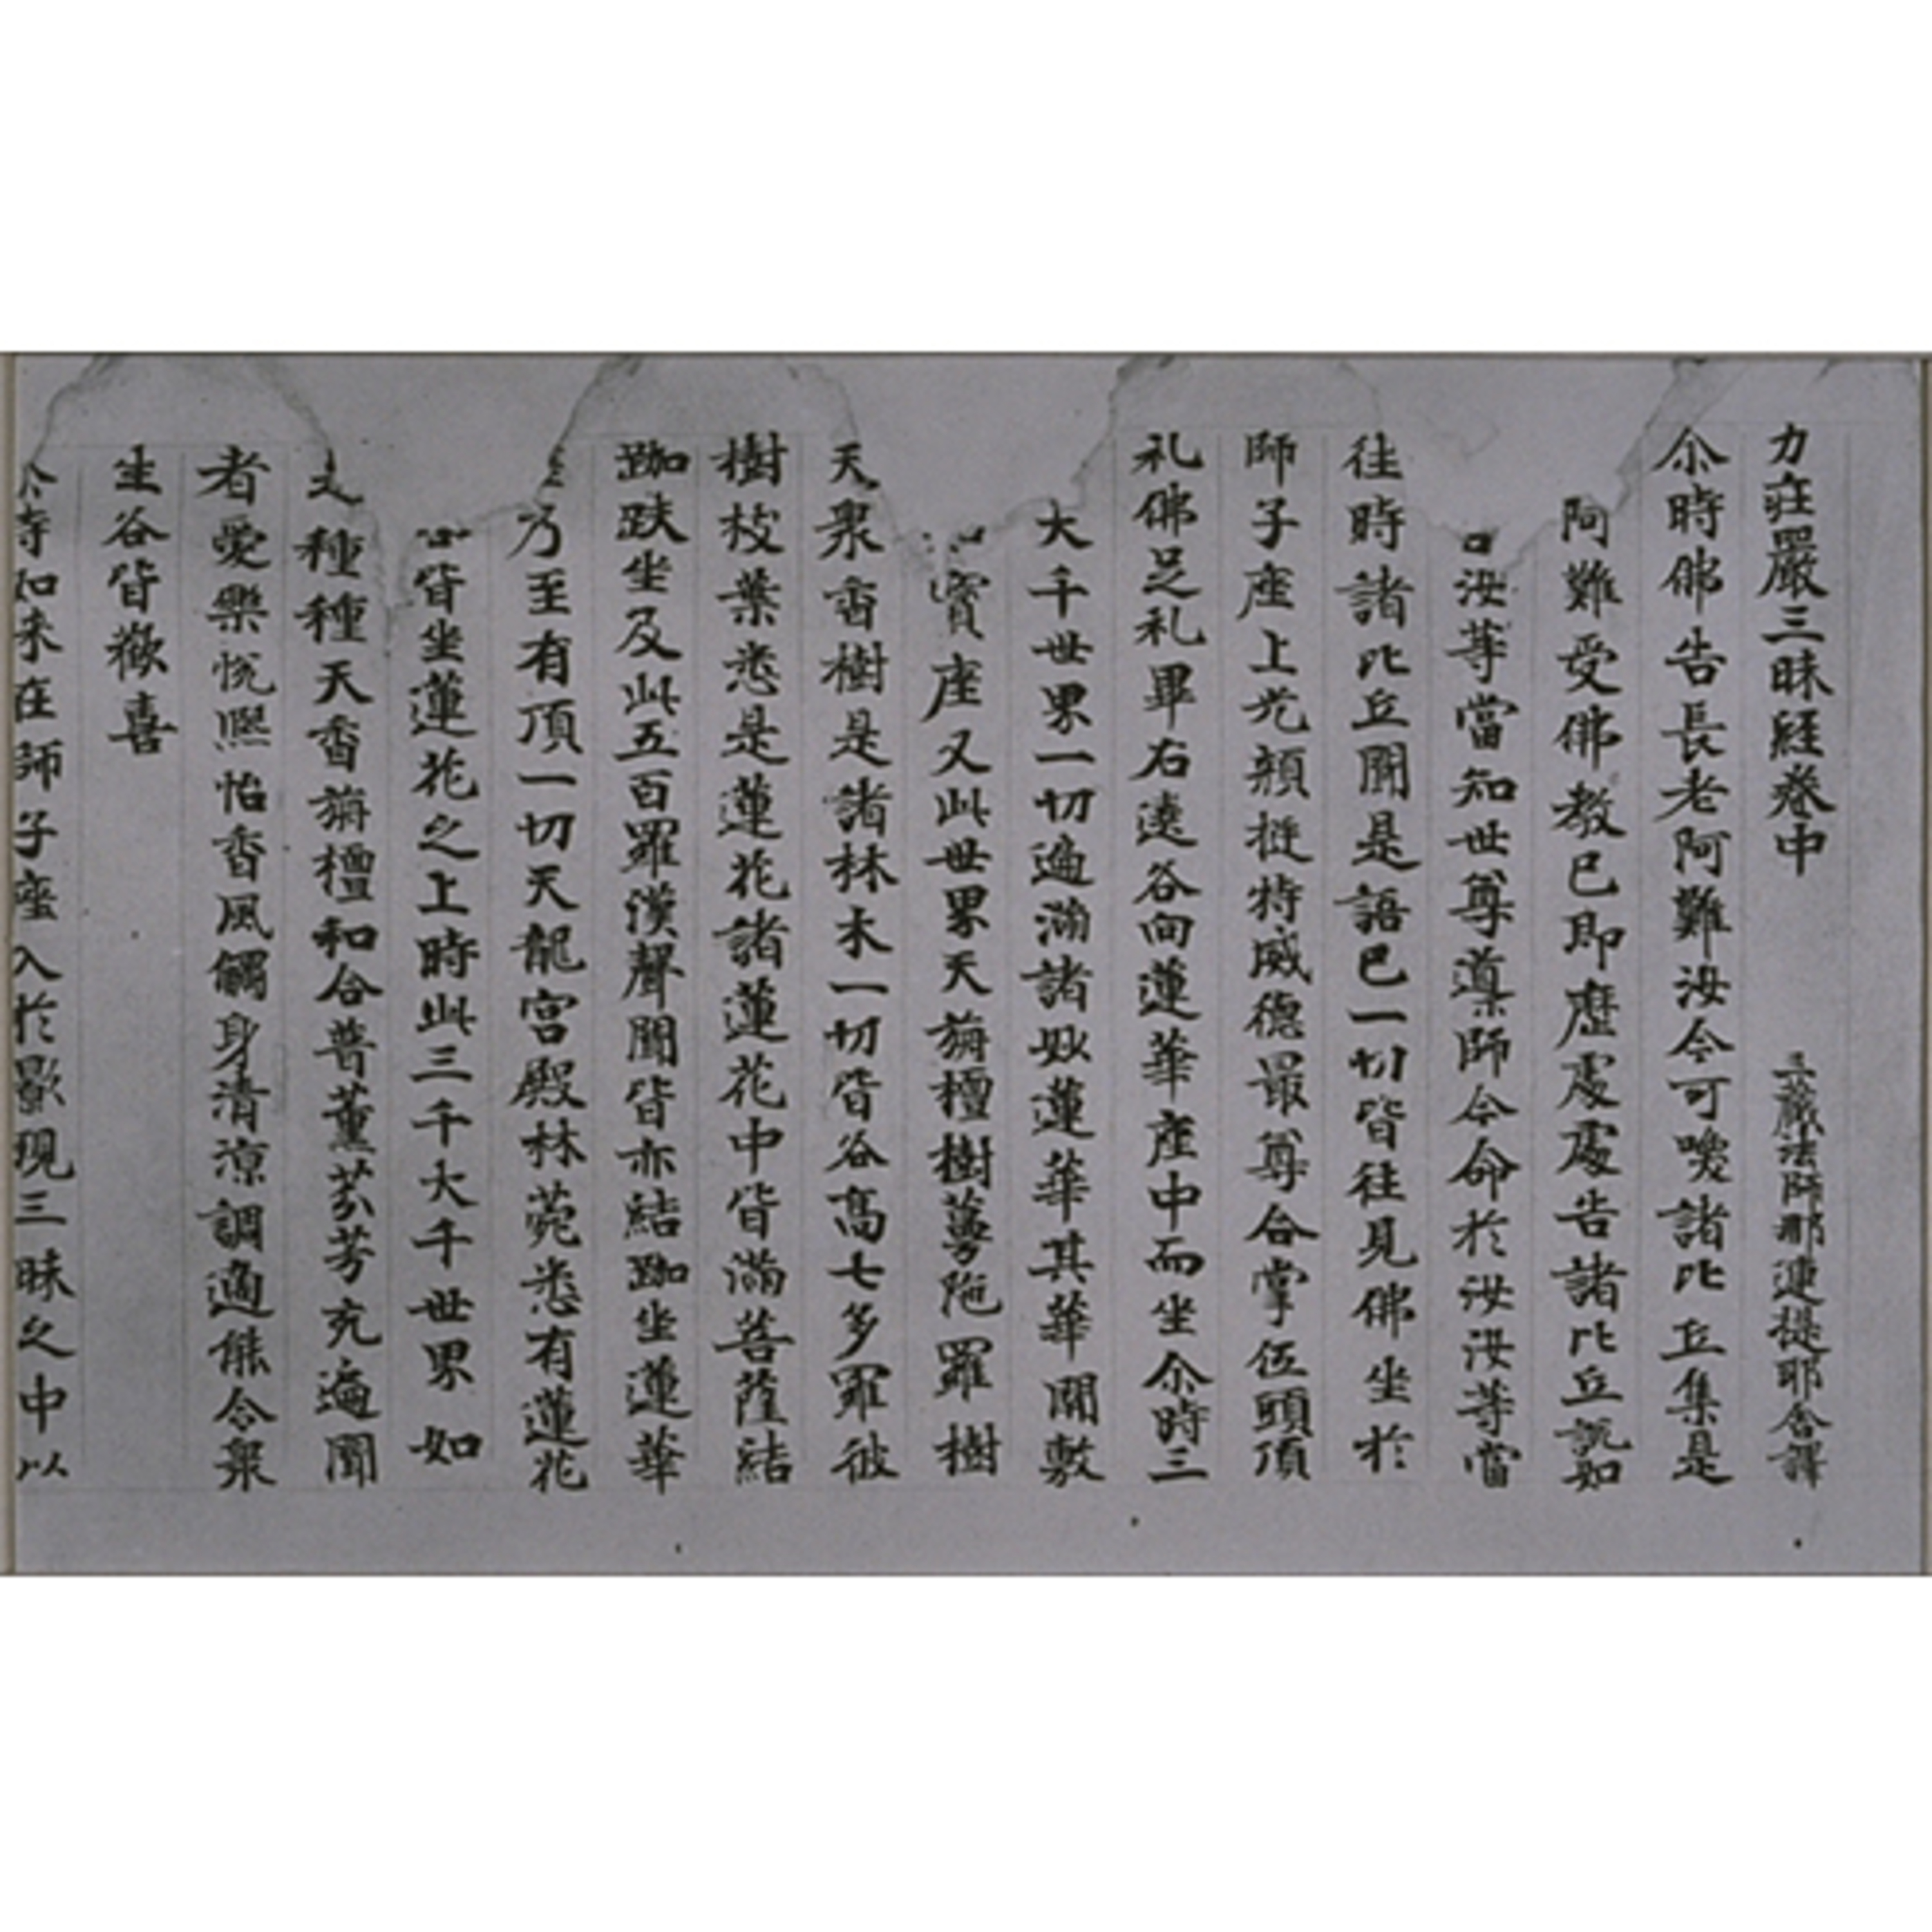 力莊嚴三昧經卷中 三藏法師那連提耶舍譯
尒時佛告長老阿難汝今可喚諸比丘集是
阿難受佛教已即歷處處告諸比丘說如
汝等當知世尊導師今命於汝汝等當
往時諸比丘聞是語已一切皆往見佛坐於
師子座上光顏挺特威德最尊合掌伍頭頂
礼佛足礼畢右遶各向蓮華座中而坐尒時三
大千世界一切遍滿諸妙蓮華其華開敷
寶座又此世界天旃檀樹蔓陁羅樹
天衆香樹是諸林木一切皆各高七多羅彼
樹枝葉悉是蓮花諸蓮花中皆滿菩薩結
跏趺坐及此五百羅漢聲聞皆亦結跏坐蓮華
乃至有頂一切天龍宮殿林菀悉有蓮花
皆坐蓮花之上時此三千大千世界如
種種天香旃檀和合普薰芬芳充遍聞
者愛樂悅熈怡香風觸身清涼調適能令衆
生各皆歡喜
尒時如来在師子座入於影現三昧之中以